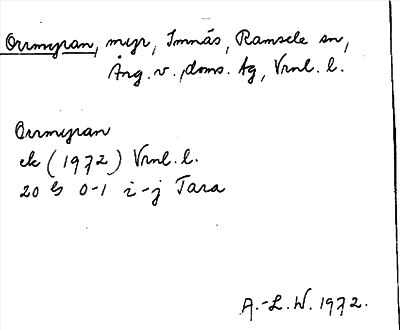 Orrmyran, myr, Imnäs, Ramsele sn,
Ång. v. doms. tg, Vrnl. l.
Orrmyran
ek (1972) Vrnl. l.
20 G 0-1 i-j Tara
A.-L. W. 1972.